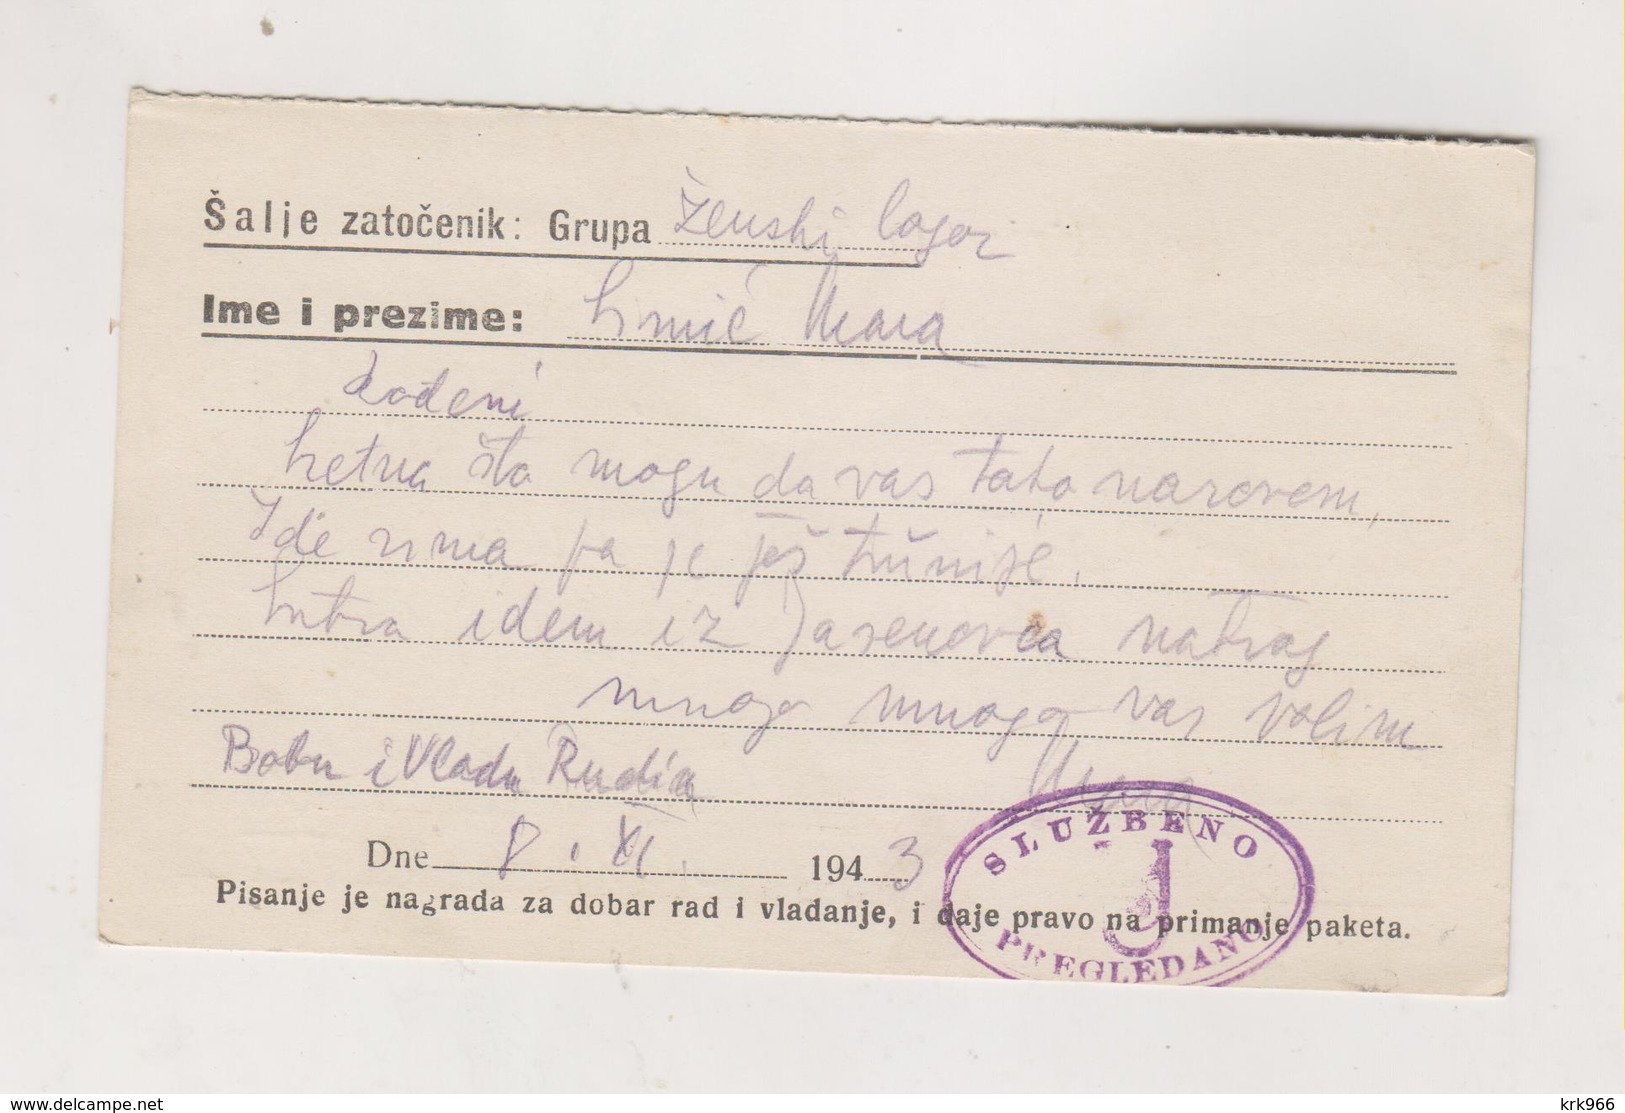 Šalje zatočenik: Grupa Ženski logor
Ime i prezime: Mara
Rođeni
Sretna šta mogu da vas tako nazovem,
Ide zima pa je još tužnije.
Sutra idem iz Jasenovca natrag
mnogo mnogo vas volim
Bobu i Vladu Mara
Dne 8. XI. 1943
Pisanje je nagrada za dobar rad i vladanje, i daje pravo na primanje paketa.
SLUŽBENO
J
PREGLEDANO
delcampe.net
krk966